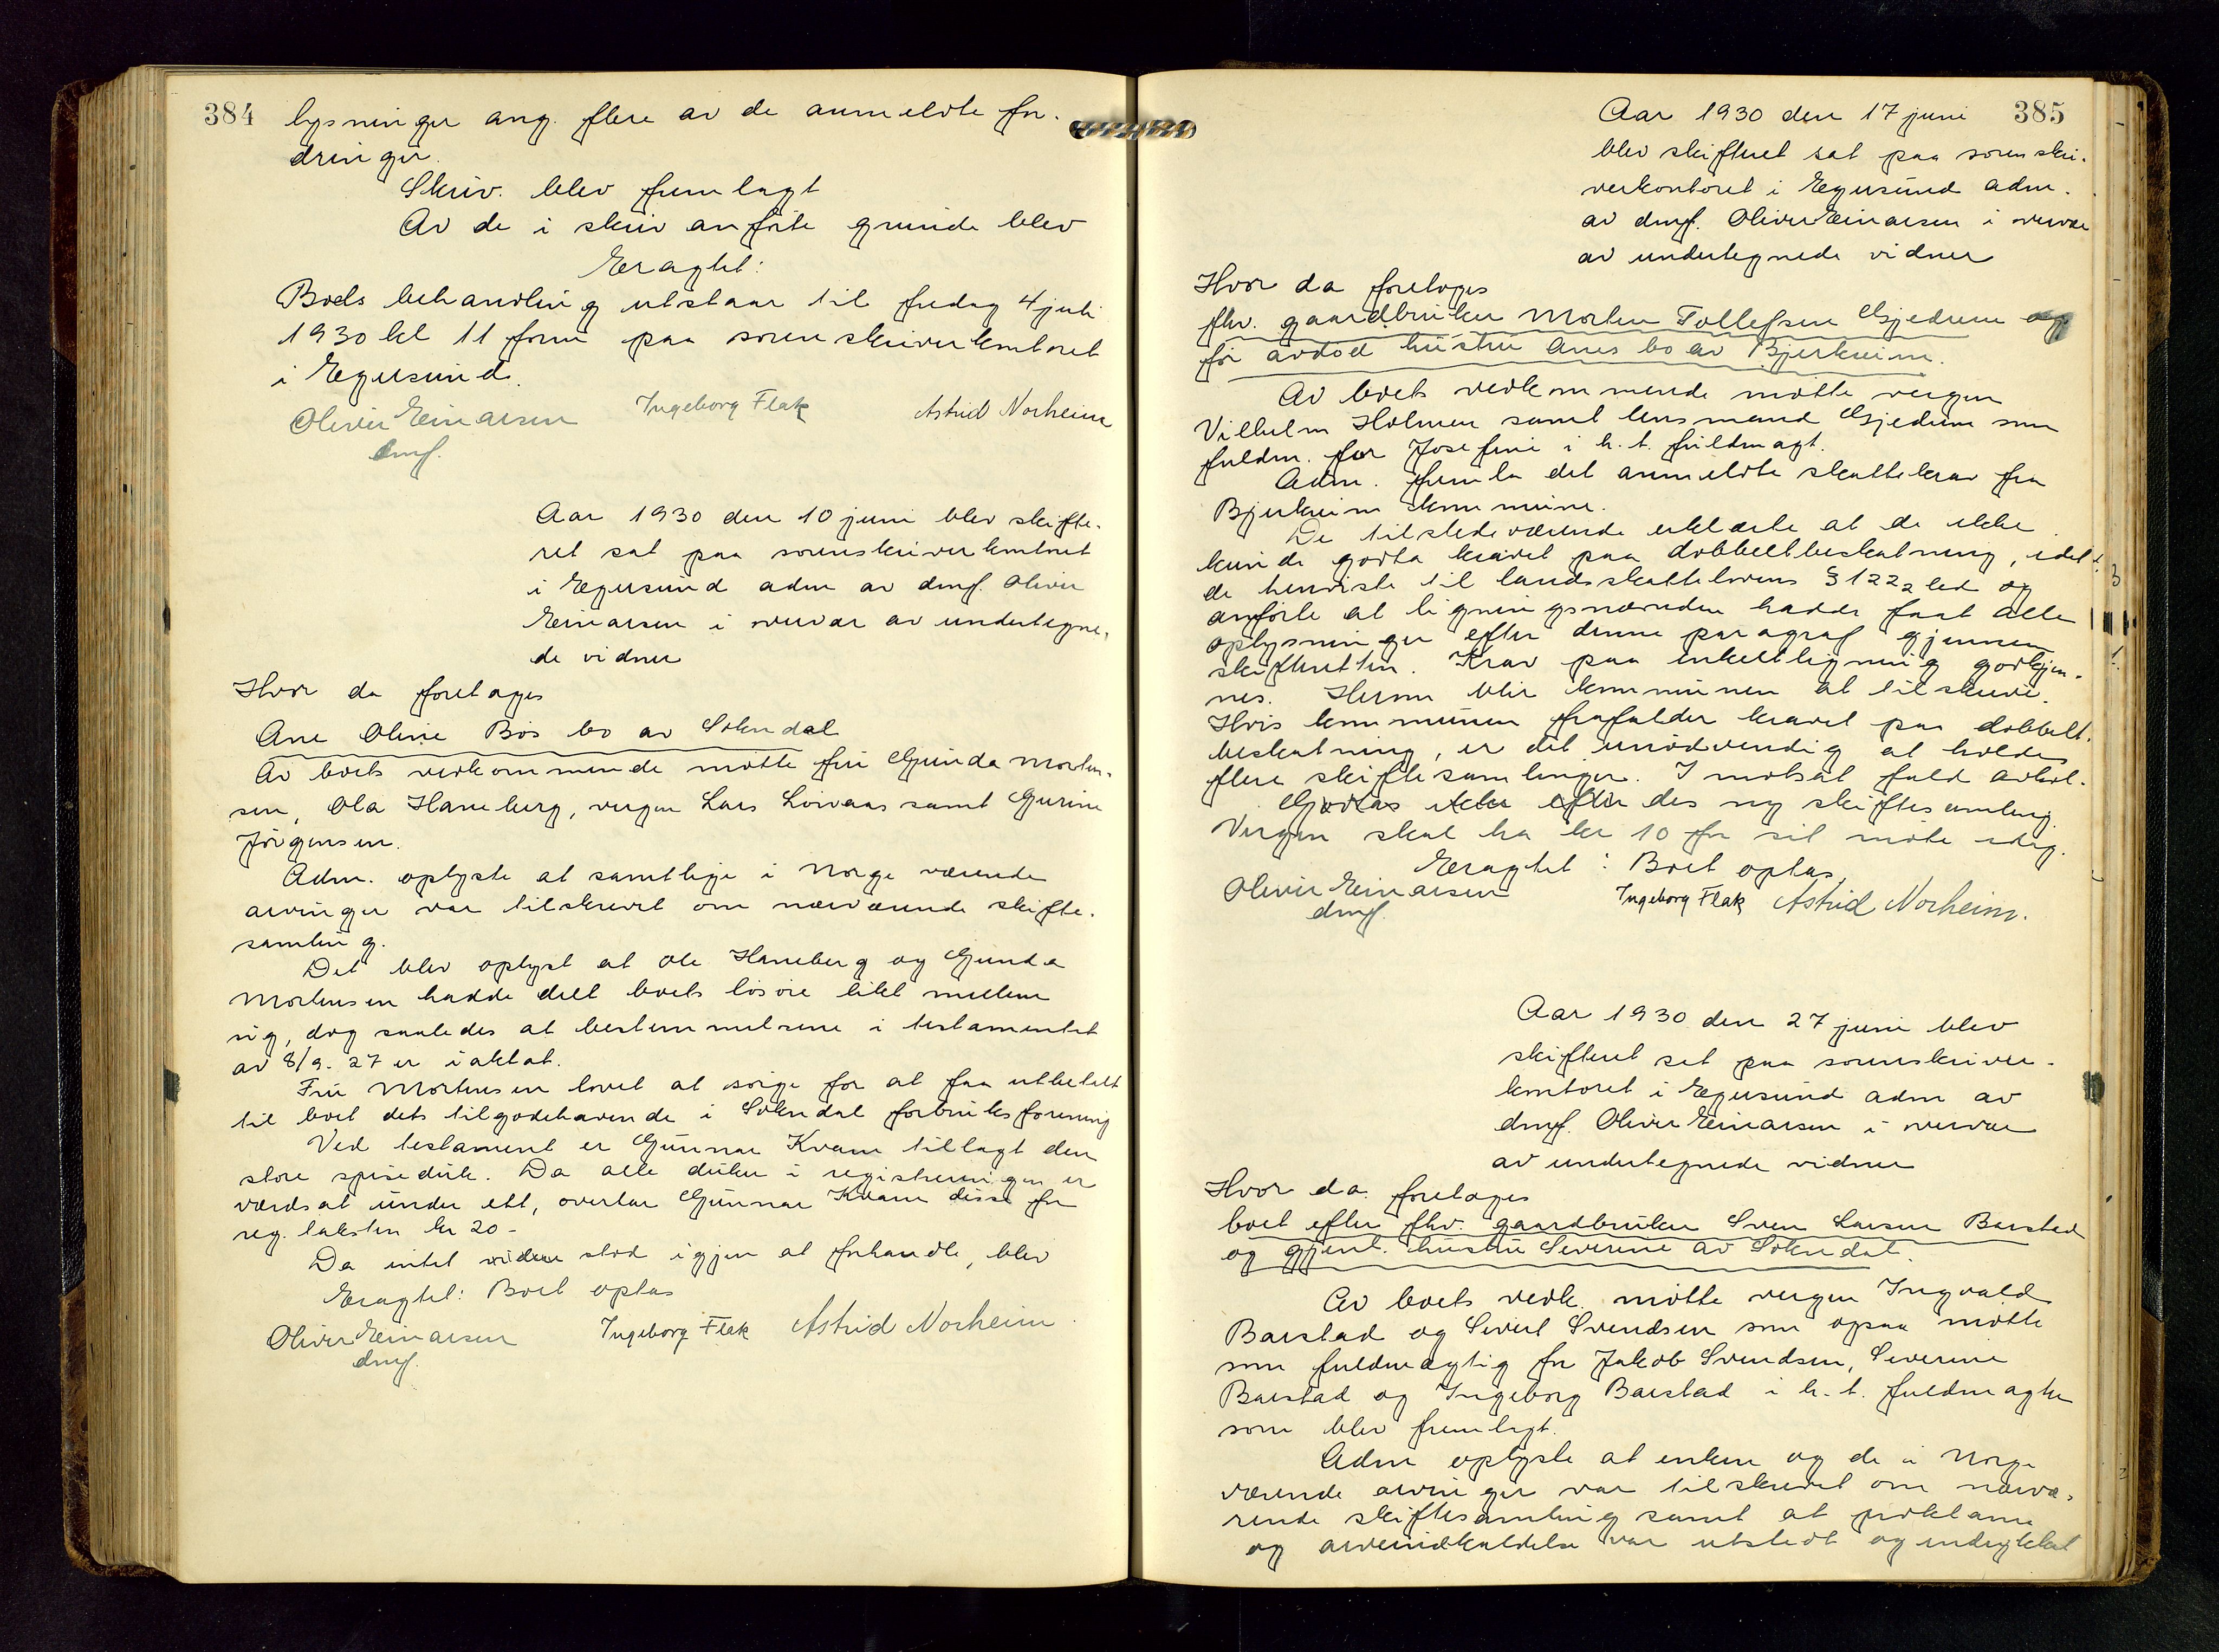 384
lysninger ang. flere av de anmeldte for-
dringer.
Skriv. blev fremlagt
Av de i skriv anförte grunde blev
Eragtet:
Boets behandling utstaar til fredag 4 juli
1930 kl 11 form paa sorenskriverkontoret
i Egersund.
Oliver Einarsen Ingeborg Flak Astrid Norheim
dmf.
Aar 1930 den 10 juni blev skifte-
ret sat paa sorenskriverkontoret
i Egersund adm av dmf. Oliver
Einarsen i overvær av undertegne-
de vidner
Hvor da foretoges
Ane Oline Bös bo av Sokndal
Av boets vedkommende mötte fru Gunda Morten-
sen, Ola Haneberg, vergen Lars Lovaas samt Gurine
Jörgensen.
Adm. oplyste at samtlige i Norge værende
arvinger var tilskrevet om nærværende skifte-
samling.
Det blev oplyst at Ole Haneberg og Gunda
Mortensen hadde delt boets lösöre likt mellem
sig, dog saaledes at bestemmelsene i testamentet
av 8/9-27 er iaktat.
Fru Mortensen lovet at sörge for at faa utbetalt
til boet dets tilgodehavende i Sokndal forbruksforening
Ved testament er Gunnar Kvam tillagt den
store spiseduk. Da alle duker i registreringen er
værdsat under ett, overtar Gunnar Kvam disse for
reg. taksten kr 20-
Da intet videre stod igjen at forhandle, blev
Eragtet: Boet optas
Oliver Einarsen Ingeborg Flak Astrid Norheim.
dmf.
385
Aar 1930 den 17 juni
blev skifteret sat paa sorenskri-
verkontoret i Egersund adm.
av dmf. Oliver Einarsen i overvær
av undertegnede vidner
Hvor da foretoges
fhv. gaardbruker Morten Tollefsen Gjedrem og
for avdöd hustru Anes bo av Bjerkreim.
Av boets vedkommende mötte vergen
Vilhelm Holmen samt lensmand Gjedrem som
fuldm. for Josefine i h.t. fuldmagt.
Adm. fremla det anmeldte skattekrav fra
Bjerkreim kommune.
De tilstedeværende erklærte at de ikke
kunde godta kravet paa dobbeltbeskatning, idet
de henviste til landsskattelovens § 122 2 led og
anförte at ligningsnævnden hadde faat alle
oplysninger efter denne paragraf gjennem
skifteretten. Krav paa enkeltligning godkjen-
nes. Herom blir kommunen at tilskrive.
Hvis kommunen frafalder kravet paa dobbelt-
beskatning, er det unödvendig at holde
flere skiftesamlinger. I motsat fald avhol-
des ny skiftesamling.
Vergen skal ha kr 10 for sit möte idag.
Eragtet: Boet optas
Oliver Einarsen Ingeborg Flak Astrid Norheim.
dmf.
Aar 1930 den 27 juni blev
skifteret sat paa sorenskriver-
kontoret i Egersund adm av
dmf. Oliver Einarsen i overvær
av undertegnede vidner
Hvor da foretoges
boet efter fhv. gaardbruker Sven Larsen Barstad
og gjenl. hustru Severine av Sokndal.
Av boets vedk. mötte vergen Ingvald
Barstad og Sivert Svendsen som ogsaa mötte
som fuldmægtig for Jakob Svendsen, Severine
Barstad og Ingeborg Barstad i h.t. fuldmagter
som blev fremlagt.
Adm oplyste at enken og de i Norge
værende arvinger var tilskrevet om nærvæ-
rende skiftesamling samt at proklama
og arveindkaldelse var utstedt og indrykket